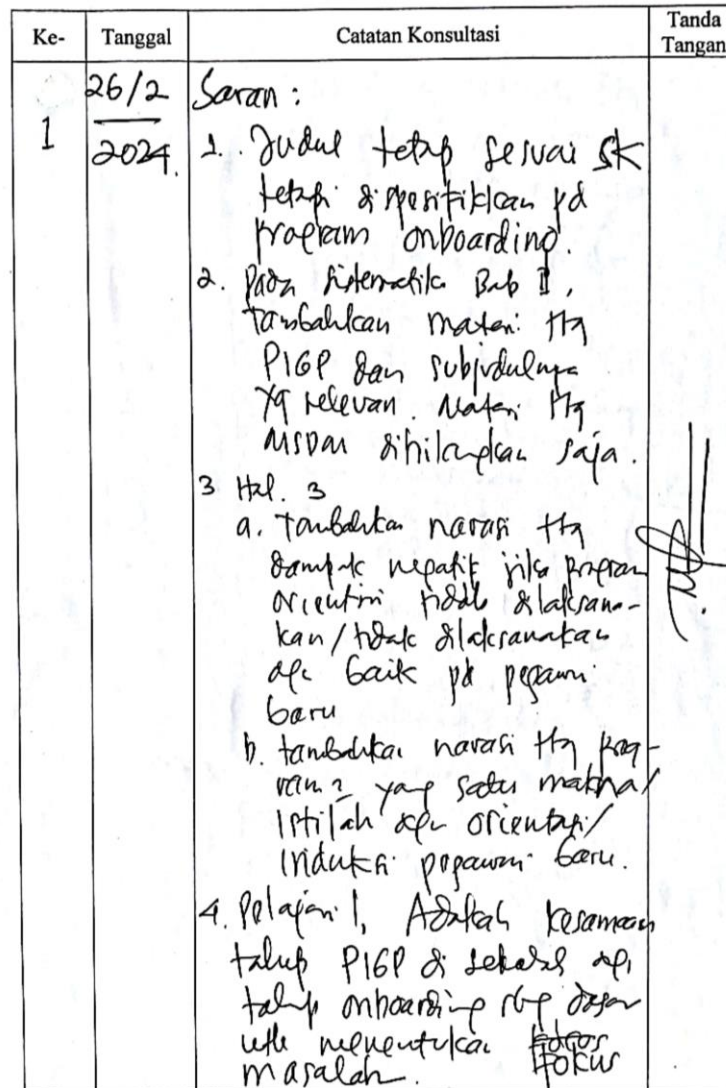 Ke- Tanggal Catatan Konsultasi Tanda Tangan
1 26/2 2024. Saran :
1. Judul tetap sesuai SK
tetapi dispesifikkan pd
program onboarding.
2. Pada sistematika Bab II,
tambahkan materi ttg
PIGP dan subjudulnya
yg relevan. Materi ttg
MSDM dihilangkan saja.
3 Hal. 3
a. tambahkan narasi ttg
dampak negatif jika program
orientasi tidak dilaksana-
kan/tidak dilaksanakan
dgn baik pd pegawai
baru
b. tambahkan narasi ttg prog-
ram2 yang satu makna/
istilah dgn orientasi/
induksi pegawai baru.
4. Pelajari!, Adakah kesamaan
tahap PIGP di sekolah dgn
tahap onboarding sbg dasar
utk menentukan fokus
masalah.